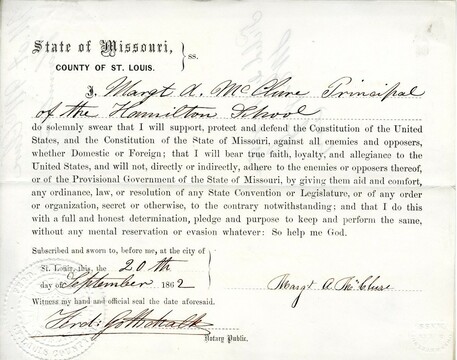 State of Missouri,
COUNTY OF ST. LOUIS. } ss.
I, Margt A. McClure Principal
of the Hamilton School
do solemnly swear that I will support, protect and defend the Constitution of the United
States, and the Constitution of the State of Missouri, against all enemies and opposers,
whether Domestic or Foreign; that I will bear true faith, loyalty, and allegiance to the
United States, and will not, directly or indirectly, adhere to the enemies or opposers thereof,
or of the Provisional Government of the State of Missouri, by giving them aid and comfort,
any ordinance, law, or resolution of any State Convention or Legislature, or of any order
or organization, secret or otherwise, to the contrary notwithstanding; and that I do this
with a full and honest determination, pledge and purpose to keep and perform the same,
without any mental reservation or evasion whatever: So help me God.
Subscribed and sworn to, before me, at the city of
St. Louis, this, the 20th
day of September 1862
Margt A. McClure
Witness my hand and official seal the date aforesaid.
Ferd: Gottschalk
Notary Public.